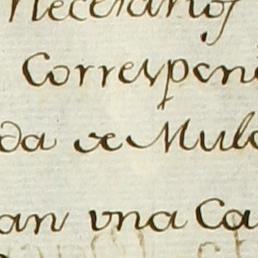 necesarios
Correspon
da de Mula
an vna Ca